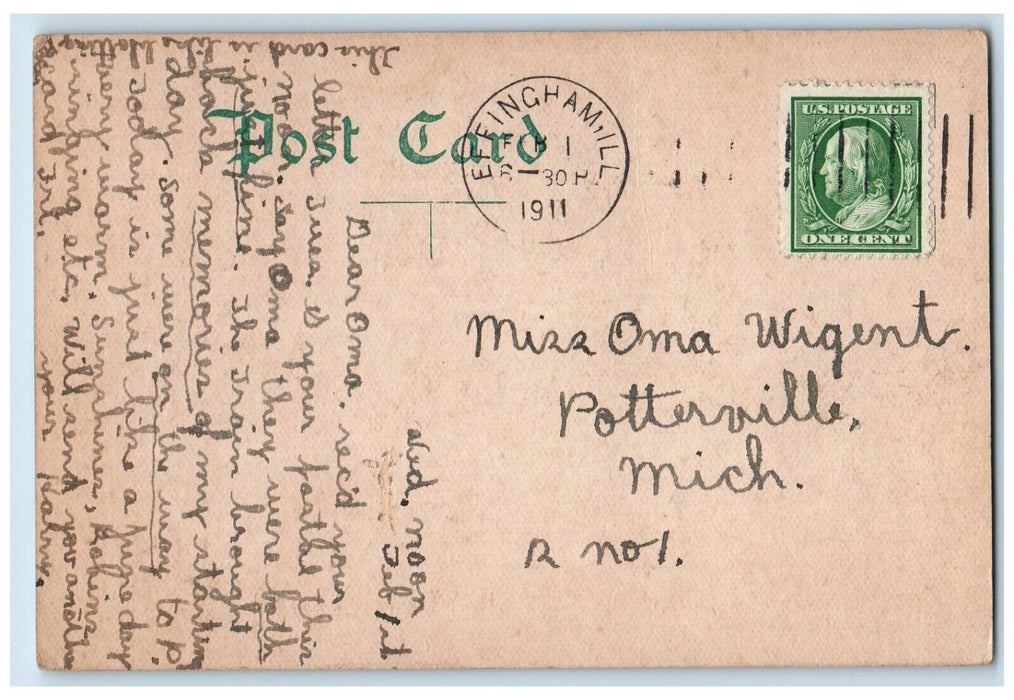 Post Card
EFFINGHAM, ILL.
FEB 1
30 P
1911
U.S. POSTAGE
ONE CENT
Miss Oma Wigent.
Potterville,
Mich.
R no 1.
Wed. noon
Feb 1st.
Dear Oma. rec'd your
letter Tues. & your postal this
noon. Say Oma they were both
just fine. The train brought
back memories of my starting
day. Some were on the way to P.
Today is just like a June day
very warm. Sunshiney, Robins
singing etc. Will send you another
card Fri. your
This card is like